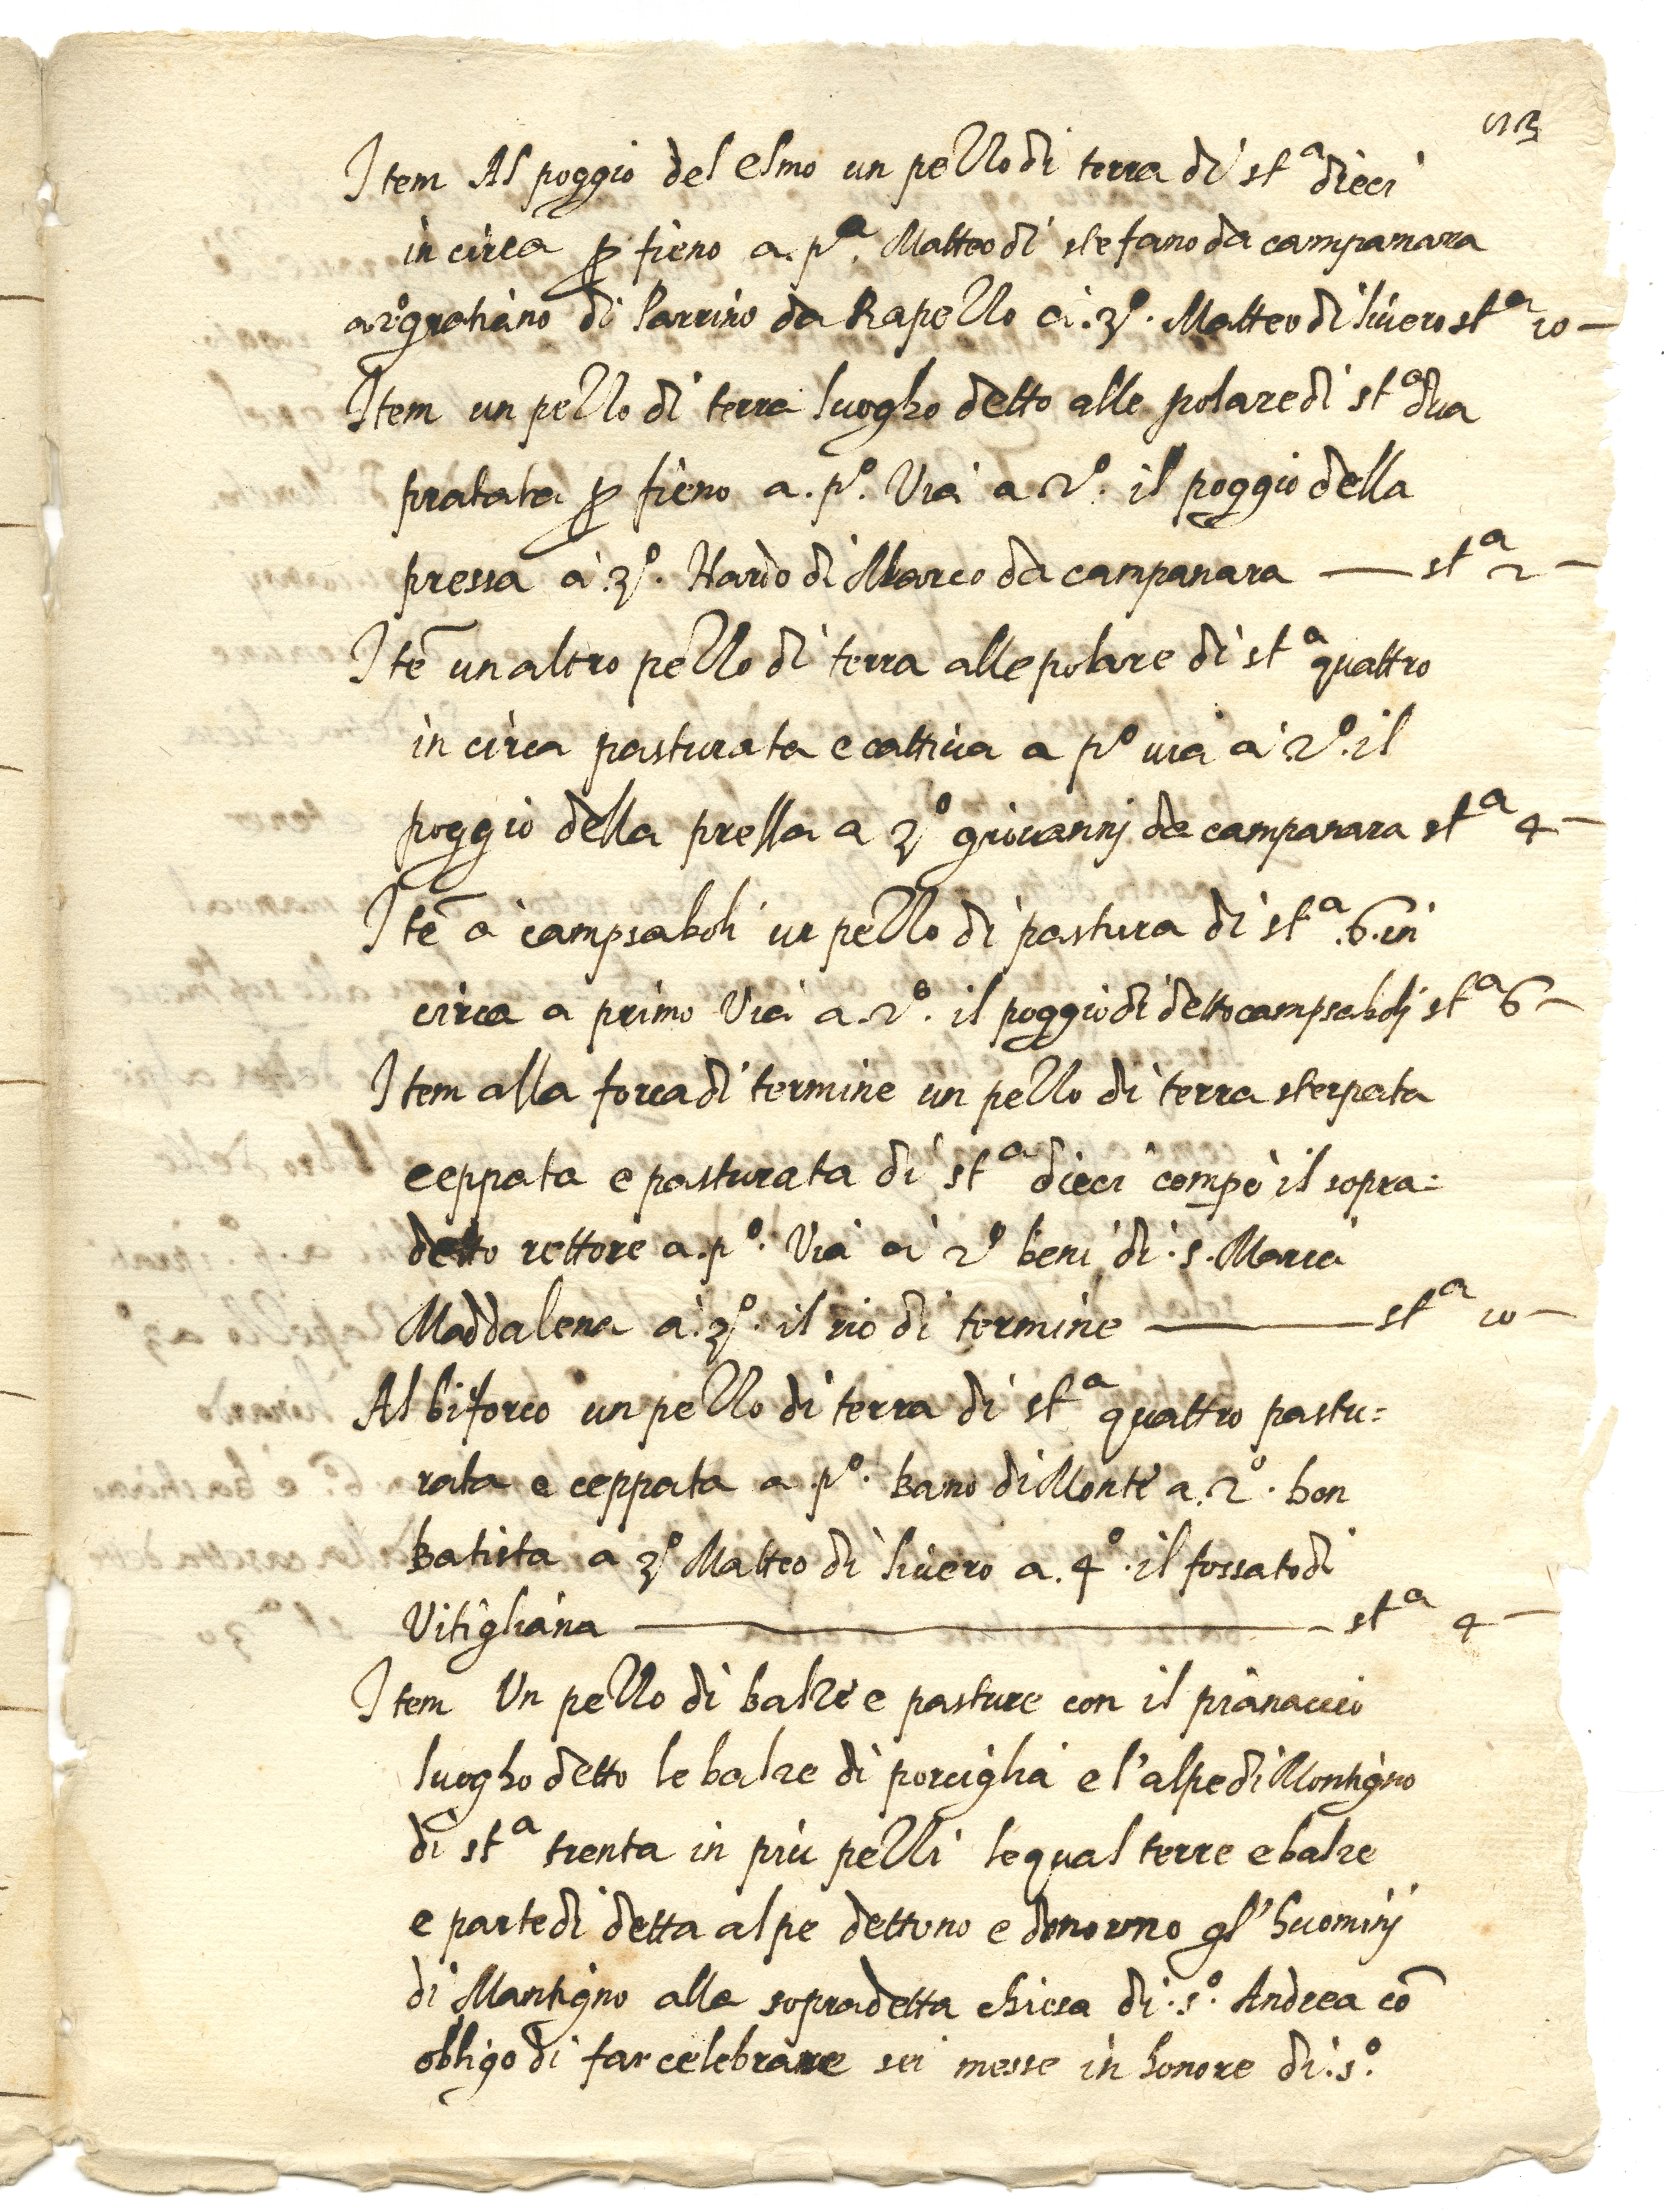 53
Item Al poggio del elmo un pezzo di terra di st.a dieci
in circa p fieno a. p.a Matteo di stefano da campanara
a 2o gratiano di Parrino da Rapezzo a. 3o. Matteo di livero st.a 10 —
Item un pezzo di terra luogho detto alle polare di st.a dua
pratata p fieno a. po. Via a 2o. il poggio della
pressa a 3o. Nardo di Marco da campanara — st.a 2 —
Itē un altro pezzo di terra alle polare di st.a quattro
in circa pasturata e cattiva a po via a 2o. il
poggio della pressa a 3o giovannj da campanara st.a 4 —
Itē a campsaboli un pezzo di pastura di st.a .6. in
circa a primo Via a. 2o. il poggio di detto campsabolj st.a 6 —
Item alla forca di termine un pezzo di terra sterpata
ceppata e pasturata di st.a dieci compò il sopra=
detto rettore a. po. Via a 2o beni di .s. Maria
Maddalena a. 3o. il rio di termine — st.a 10 —
Al biforco un pezzo di terra di st.a quattro pastu=
rata e ceppata a .po. Bano di Monte a. 2o. bon
Batista a 3o Matteo di livero a. 4o. il fossato di
Vitigliana — st.a 4 —
Item Un pezzo di balze e pasture con il pianaccio
luogho detto le balze di porciglia e l'alpe di Montigno
di st.a trenta in più pezzi le qual terre e balze
e parte di detta alpe dettono e donorno gl'huominj
di Mantigno alla sopradetta chiesa di .so. Andrea cō
obligo di far celebrare sei messe in honore di .so.